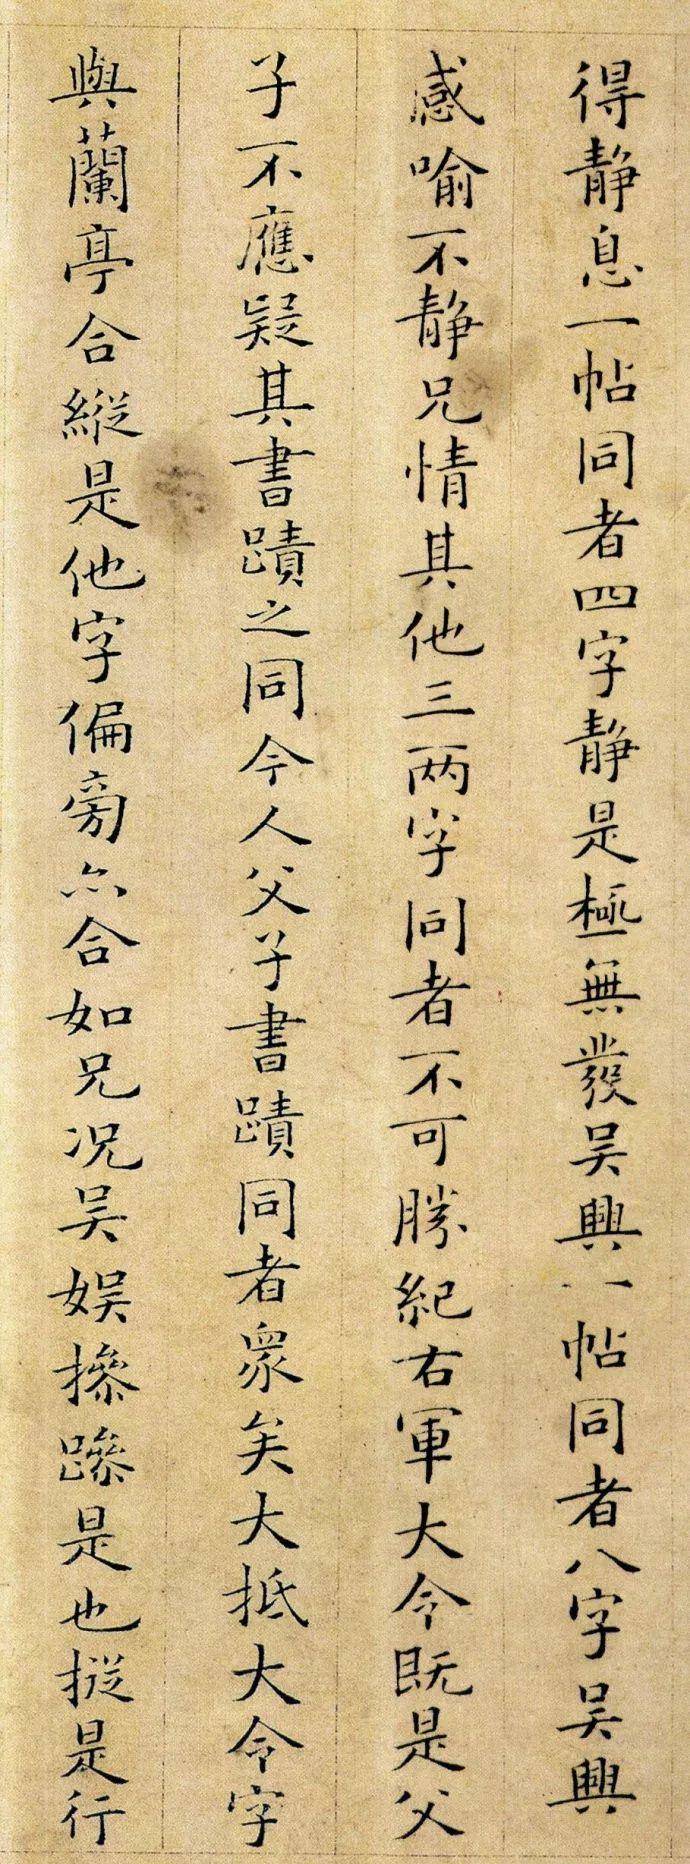 得静息一帖同者四字静是極無發吴興一帖同者八字吴興
感喻不静兄情其他三两字同者不可勝紀右軍大令既是父
子不應疑其書蹟之同今人父子書蹟同者衆矣大抵大令字
與蘭亭合縱是他字偏旁亦合如兄况吴娱摻蹨是也摐是行